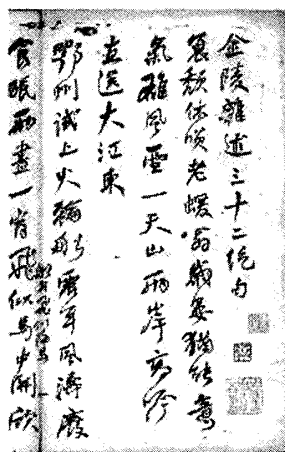 金陵雜述三十二絕句
衰頹休嘆老蝯翁歲晏猶能意
氣雄風雪一天山兩岸高吟
直送大江東
鄂州試上火輪船震耳風濤廢
食眠兩晝一宵飛似馬中間